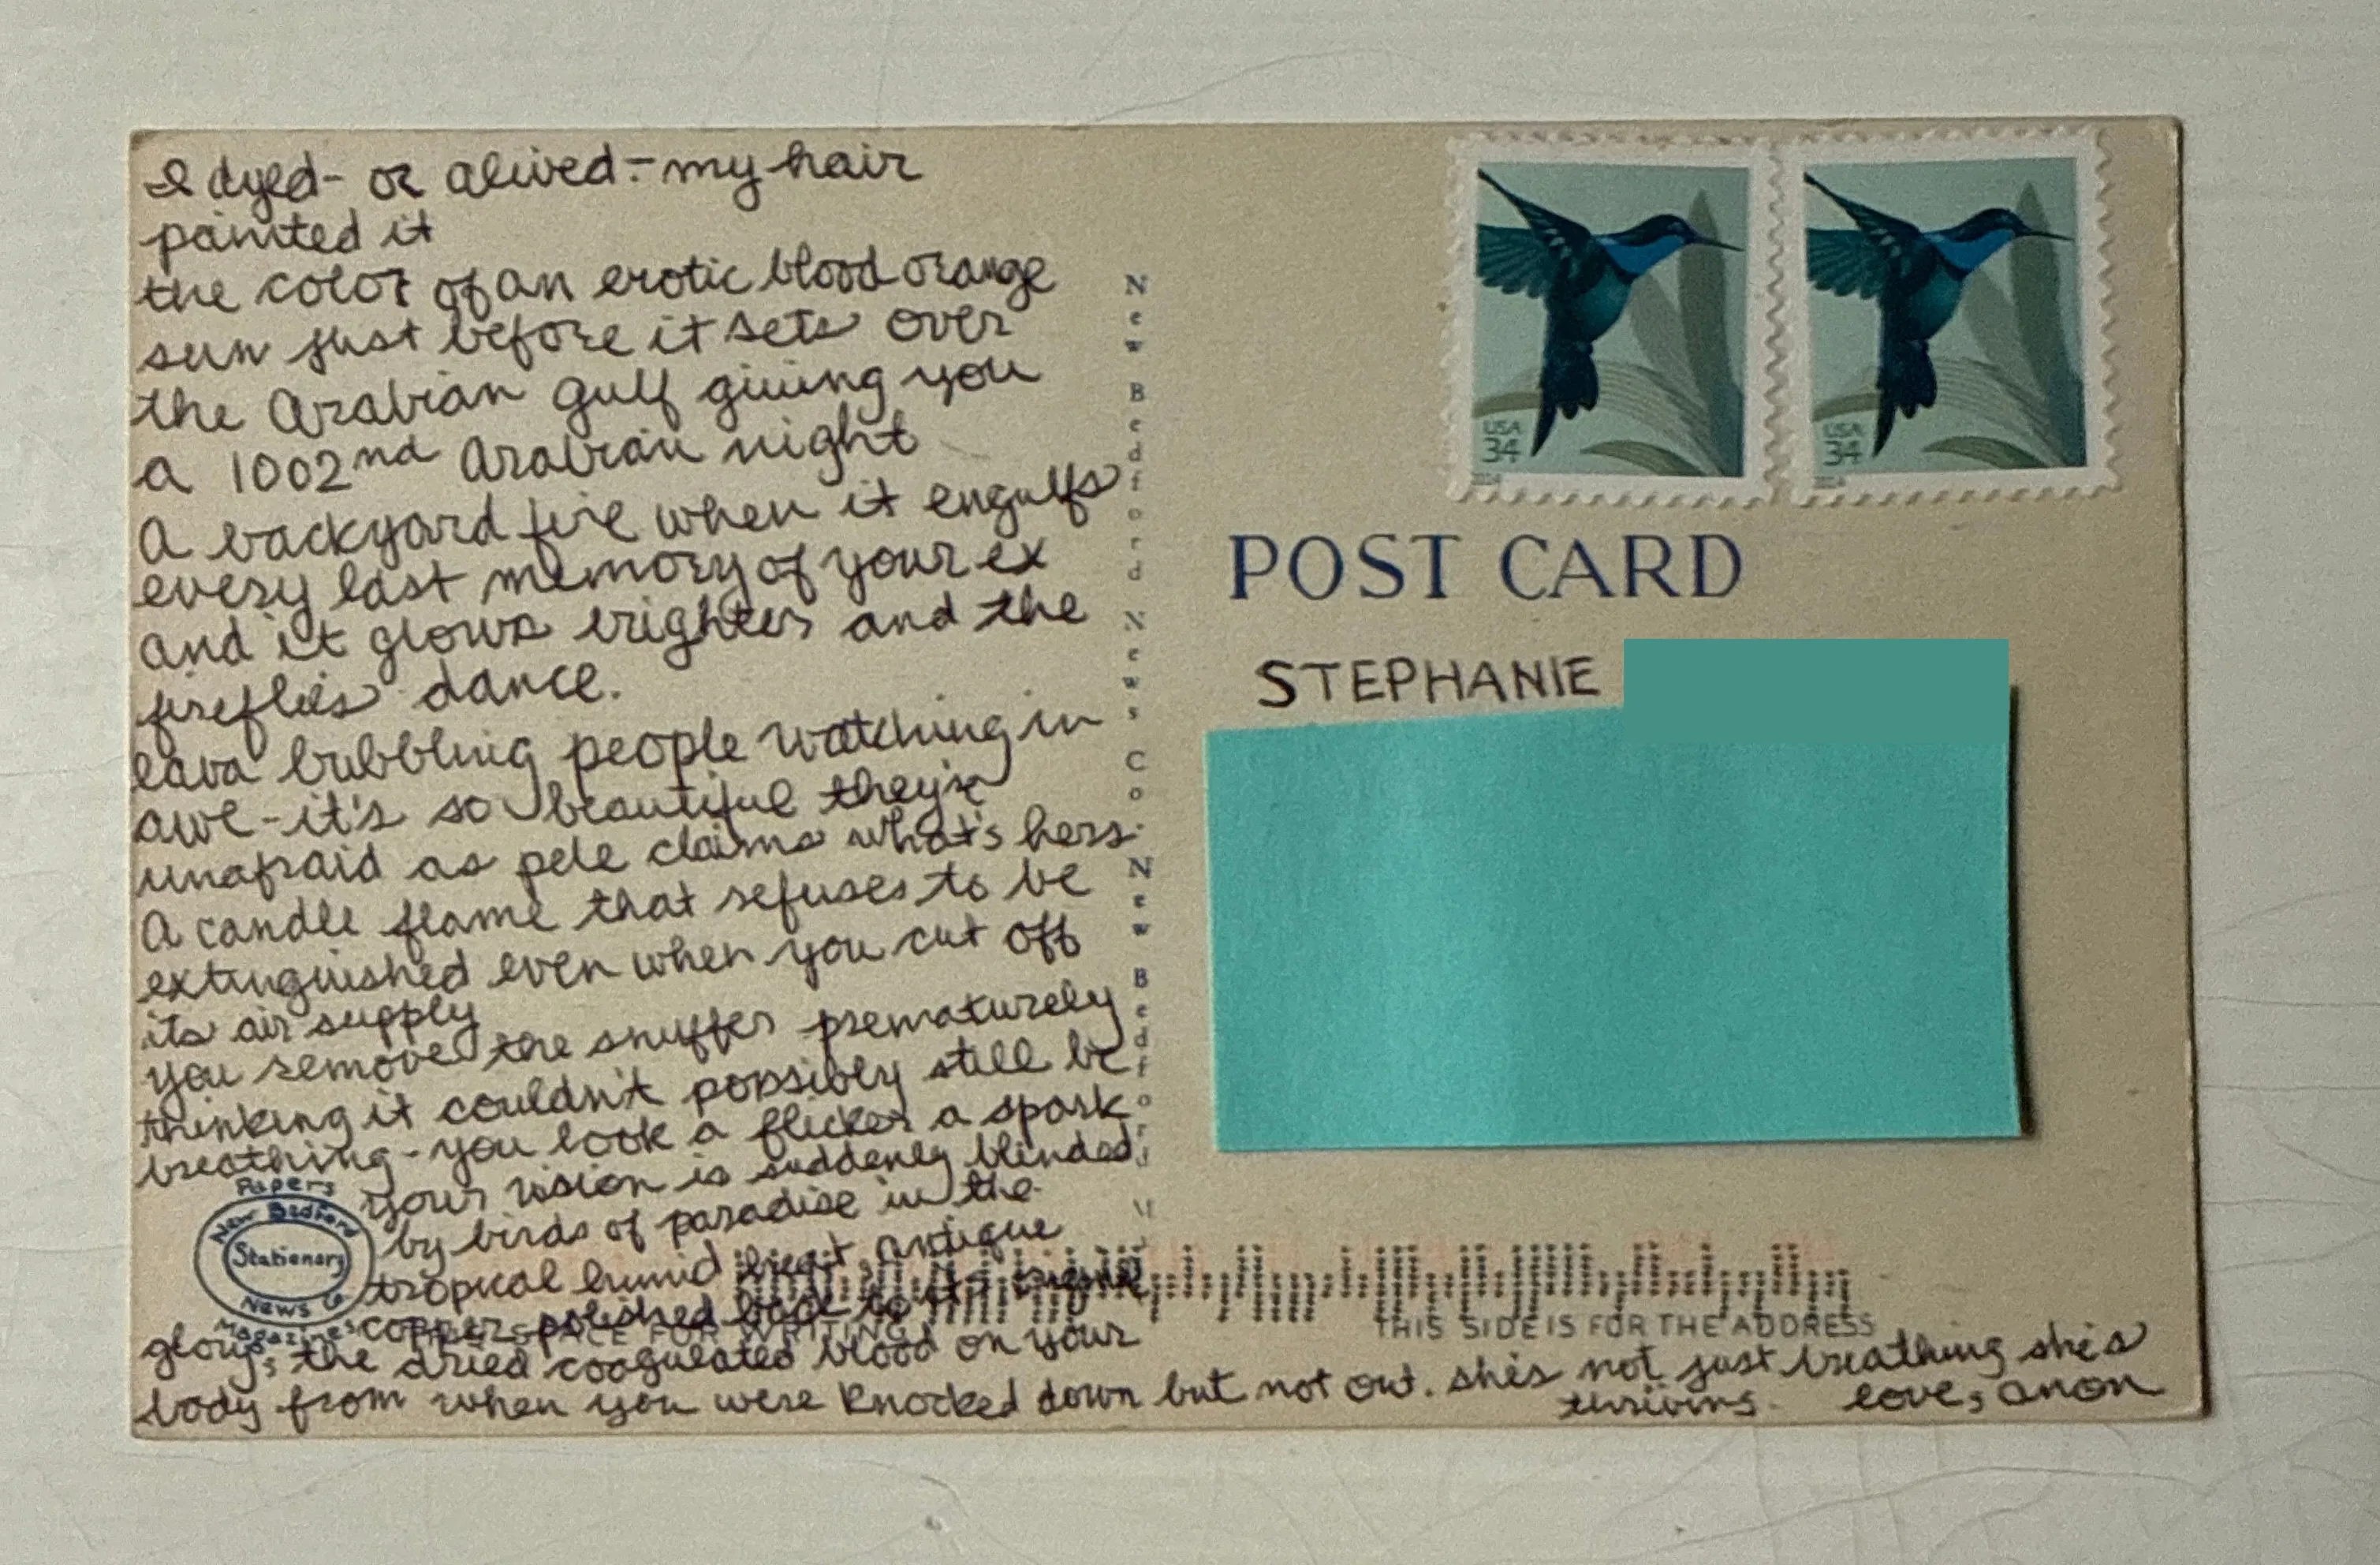 I dyed- or alived- my hair
painted it
the color of an erotic blood orange
sun just before it sets over
the Arabian Gulf giving you
a 1002nd Arabian night
A backyard fire when it engulfs
every last memory of your ex
and it glows brighter and the
fireflies dance.
lava bubbling people watching in
awe-it's so beautiful they're
unafraid as pele claims what's hers.
A candle flame that refuses to be
extinguished even when you cut off
its air supply
you remove the snuffer prematurely
thinking it couldn't possibly still be
breathing-you look a flicker a spark
your vision is suddenly blinded
by birds of paradise in the
tropical humid heat, antique
copper polished back to its
glory, the dried coagulated blood on your
body from when you were knocked down but not out. she's not just breathing she's
thriving. love, anon
Papers
New Bedford
Stationary
News Co
Magazines
SPACE FOR WRITING
New Bedford News Co. New Bedford
USA
34
USA
34
POST CARD
STEPHANIE
THIS SIDE IS FOR THE ADDRESS